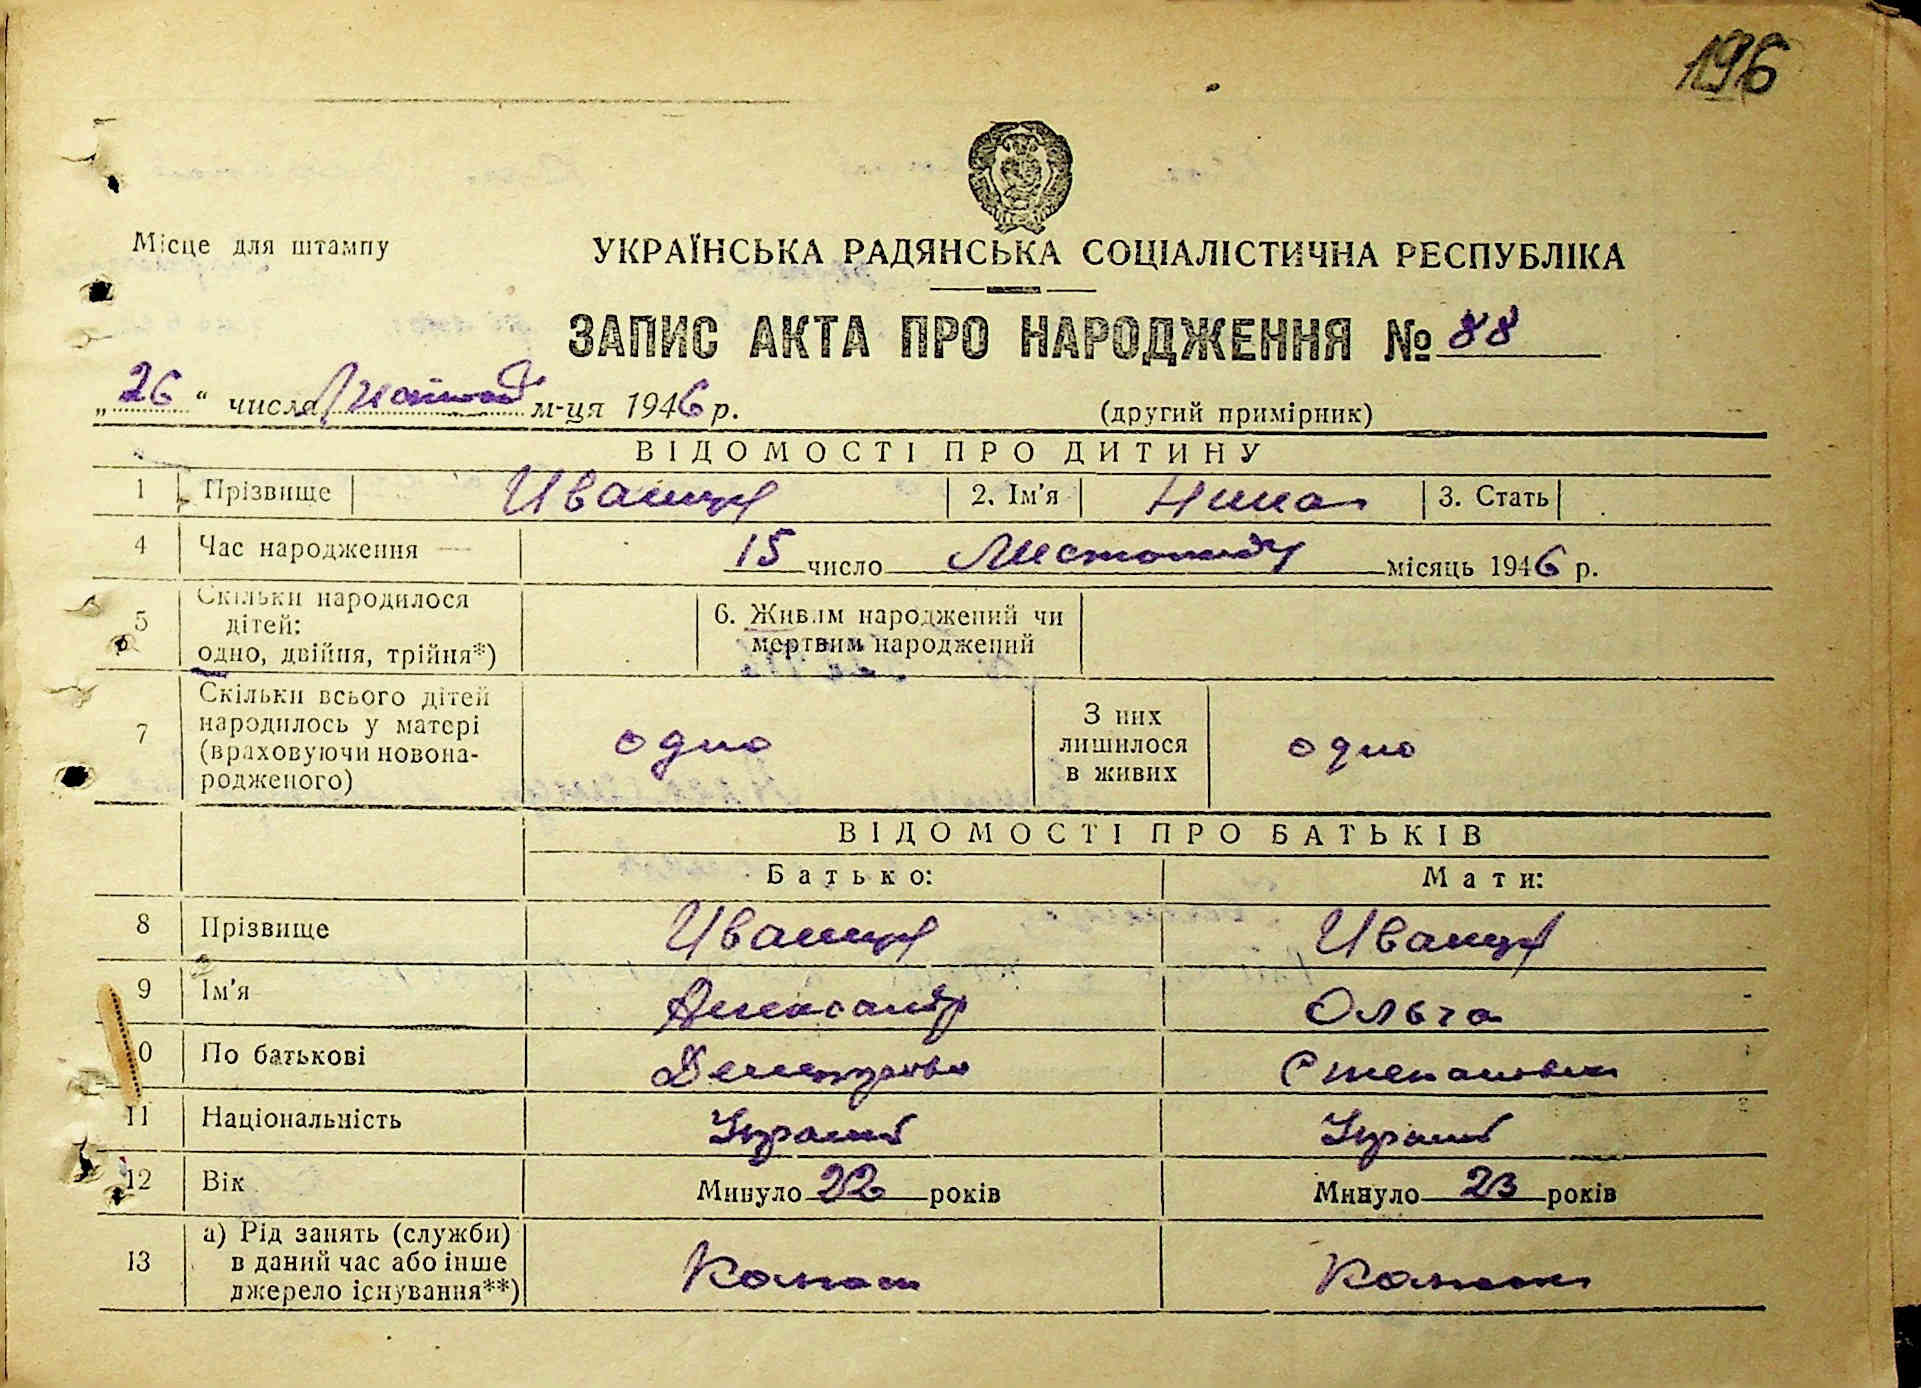 196
Місце для штампу
УКРАЇНСЬКА РАДЯНСЬКА СОЦІАЛІСТИЧНА РЕСПУБЛІКА
ЗАПИС АКТА ПРО НАРОДЖЕННЯ № 88
„26“ числа м-ця 1946 р. (другий примірник)
ВІДОМОСТІ ПРО ДИТИНУ
1 Прізвище Иванчук 2. Ім'я Нина 3. Стать
4 Час народження 15 число Листопад місяць 1946 р.
5 Скільки народилося
дітей:
одно, двійня, трійня*)
6. Живим народжений чи
мертвим народжений
7 Скільки всього дітей
народилось у матері
(враховуючи новона-
родженого)
одно
З них
лишилося
в живих
одно
ВІДОМОСТІ ПРО БАТЬКІВ
Батько: Мати:
8 Прізвище
9 Ім'я Александр Ольга
10 По батькові Степановна
11 Національність
12 Вік Минуло 22 років Минуло 23 років
13 а) Рід занять (служби)
в даний час або інше
джерело існування**)